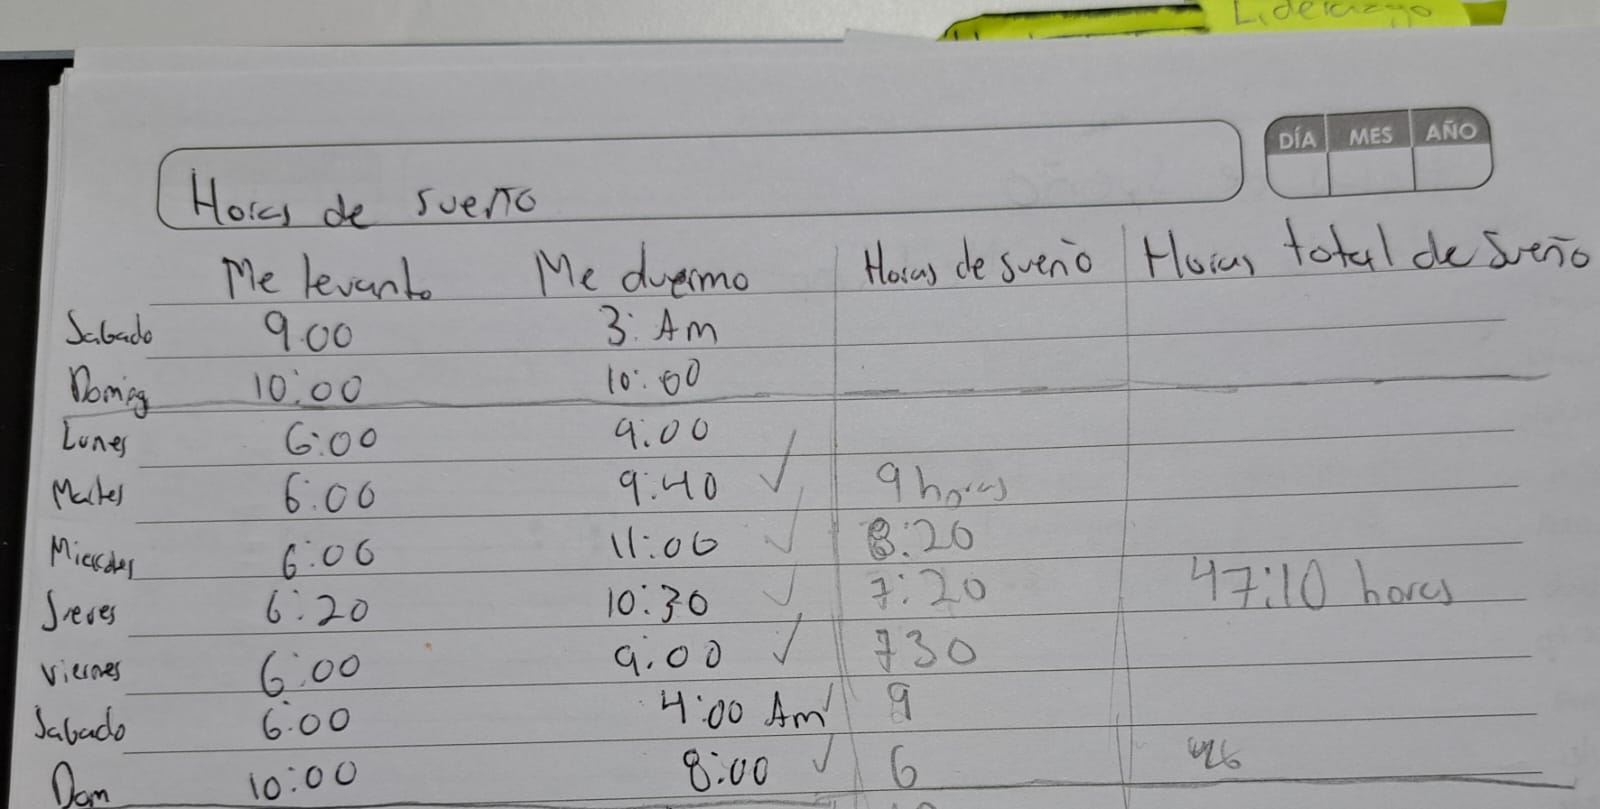 Liderazgo
DÍA MES AÑO
Horas de sueño
Me levanto Me duermo Horas de sueño Horas total de Sueño
Sabado 9:00 3: Am
Doming 10:00 10:00
Lunes 6:00 9:00
Martes 6:00 9:40 ✓ 9 horas
Miercoles 6:00 11:00 ✓ 8:20
Jueves 6:20 10:30 ✓ 7:20 47:10 horas
Viernes 6:00 9:00 ✓ 730
Sabado 6:00 4:00 Am ✓ 9
Dom 10:00 8:00 ✓ 6